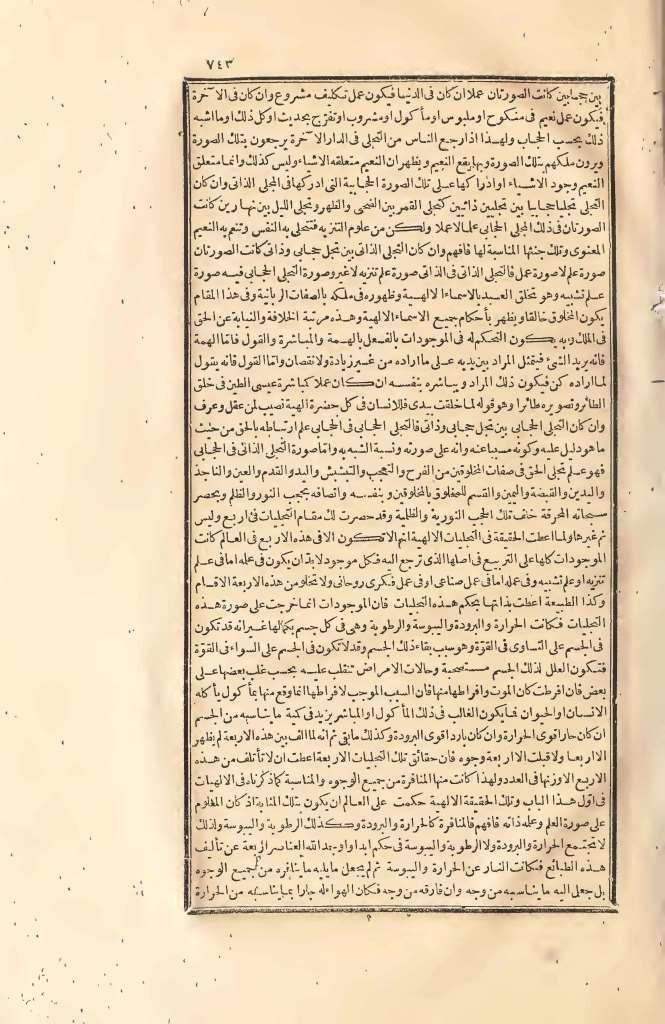 ٧٤٣
بين حجابين كانت الصورتان عملا ان كان فى الدنيا فيكون عمل تكليف مشروع وان كان فى الآخرة
فيكون عمل نعيم فى منكوح او ملبوس او مأكول او مشروب او تفرج بحديث او كل ذلك او ما اشبه
ذلك بحسب الحجاب ولهذا اذا رجع الناس من التجلى فى الدار الآخرة يرجعون بتلك الصورة
ويرون ملكهم بتلك الصورة وبها يقع النعيم ويظهر ان النعيم متعلقه الاشياء وليس كذلك وانما متعلق
النعيم وجود الاشياء او ادراكها على تلك الصورة الحجابية التى ادركها فى المجلى الذاتى وان كان
التجلى تجليا حجابيا بين تجليين ذاتيين كتجلى القمر بين الضحى والظهر وتجلى الليل بين نهارين كانت
الصورتان فى ذلك المجلى الحجابى علما لا عملا ولكن من علوم التنزيه فتتجلى به النفس وتنعم به النعيم
المعنوى وتلك جنتها المناسبة لها فافهم وان كان التجلى الذاتى بين تجل حجابى وذاتى كانت الصورتان
صورة علم لا صورة عمل فالتجلى الذاتى فى الذاتى صورة علم تنزيه لا غير وصورة التجلى الحجابى فيه صورة
علم تشبيه وهو تخلق العبد بالاسماء الالهية وظهوره فى ملكه بالصفات الربانية وفى هذا المقام
يكون المخلوق خالقا ويظهر بأحكام جميع الاسماء الالهية وهذه مرتبة الخلافة والنيابة عن الحق
فى الملك وبه يكون التحكم له فى الموجودات بالفعل بالهمة والمباشرة والقول فاما الهمة
فانه يريد الشئ فيتمثل المراد بين يديه على ما اراده من غير زيادة ولا نقصان واما القول فانه يقول
لما اراده كن فيكون ذلك المراد ويباشره بنفسه ان كان عملا كمباشرة عيسى الطين فى خلق
الطائر وتصويره طائرا وهو قوله لما خلقت بيدى فللانسان فى كل حضرة الهية نصيب لمن عقل وعرف
وان كان التجلى الحجابى بين تجل حجابى وذاتى فالتجلى الحجابى فى الحجابى علم ارتباطه بالحق من حيث
ما هو دليل عليه وكونه مسببا عنه وانه على صورته ونسبة الشبه به واما صورة التجلى الذاتى فى الحجابى
فهو علم تجلى الحق فى صفات المخلوقين من الفرح والتعجب والتبشبش واليد والقدم والعين والناجذ
واليدين والقبضة واليمين والقسم للمخلوق بالمخلوقين وبنفسه واتصافه بحجب النور والظلم وبحصر
سبحاته المحرقة خلف تلك الحجب النورية والظلمية وقد حصرت لك مقام التجليات فى اربع وليس
ثم غيرها ولما اعطت الحقيقة فى التجليات الالهية انها لا تكون الا فى هذه الاربع فى العالم كانت
الموجودات كلها على التربيع فى اصلها الذى ترجع اليه فكل موجود لابد ان يكون فى عمله اما فى علم
تنزيه او علم تشبيه وفى عمله اما فى عمل صناعى او فى عمل فكرى روحانى ولا تخلو من هذه الاربعة الاقسام
وكذا الطبيعة اعطت بذاتها بحكم هذه التجليات فان الموجودات انما خرجت على صورة هذه
التجليات فكانت الحرارة والبرودة واليبوسة والرطوبة وهى فى كل جسم بكمالها غير انه قد تكون
فى الجسم على التساوى فى القوة وهو سبب بقاء ذلك الجسم وقد لا تكون فى الجسم على السواء فى القوة
فتكون العلل لذلك الجسم مستصحبة وحالات الامراض تنقلب عليه بحسب غلب بعضها على
بعض فان افرطت كان الموت وافراطها منها فان السبب الموجب لافراطها انما وقع منها بمأكول يأكله
الانسان او الحيوان فيكون الغالب فى ذلك المأكول او المباشر يزيد فى كمية ما يناسبه من الجسم
ان كان حارا قوى الحرارة وان كان باردا قوى البرودة وكذلك ما بقى ثم انه لما الف بين هذه الاربعة لم يظهر
الا اربعا ولا قبلت الا اربعة وجوه فان حقائق تلك التجليات الاربعة اعطت ان لا تأتلف من هذه
الاربع الا وزنها فى العدد ولهذا كانت منها المنافرة من جميع الوجوه والمناسبة كما ذكرناه فى الالهيات
فى اول هذا الباب وتلك الحقيقة الالهية حكمت على العالم ان يكون بتلك المثابة اذ كان المعلوم
على صورة العلم وعلمه ذاته فافهم فالمنافرة كالحرارة والبرودة وكذلك الرطوبة واليبوسة ولذلك
لا تجتمع الحرارة والبرودة ولا الرطوبة واليبوسة فى حكم ابدا واوجد الله العناصر اربعة عن تأليف
هذه الطبائع فكانت النار عن الحرارة واليبوسة ثم لم يجعل ما يليه ما ينافره من جميع الوجوه
بل جعل اليه ما يناسبه من وجه وان فارقه من وجه فكان الهواء له جارا بما يناسبه من الحرارة